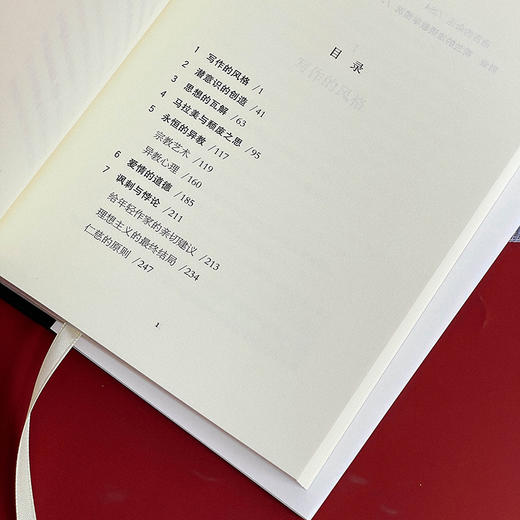 目 录
1 写作的风格 /1
2 潜意识的创造 /41
3 思想的瓦解 /63
4 马拉美与颓废之思 /95
5 永恒的异教 /117
宗教艺术 /119
异教心理 /160
6 爱情的道德 /185
7 讽刺与悖论 /211
给年轻作家的亲切建议 /213
理想主义的最终结局 /234
仁慈的原则 /247
1
写作的风格